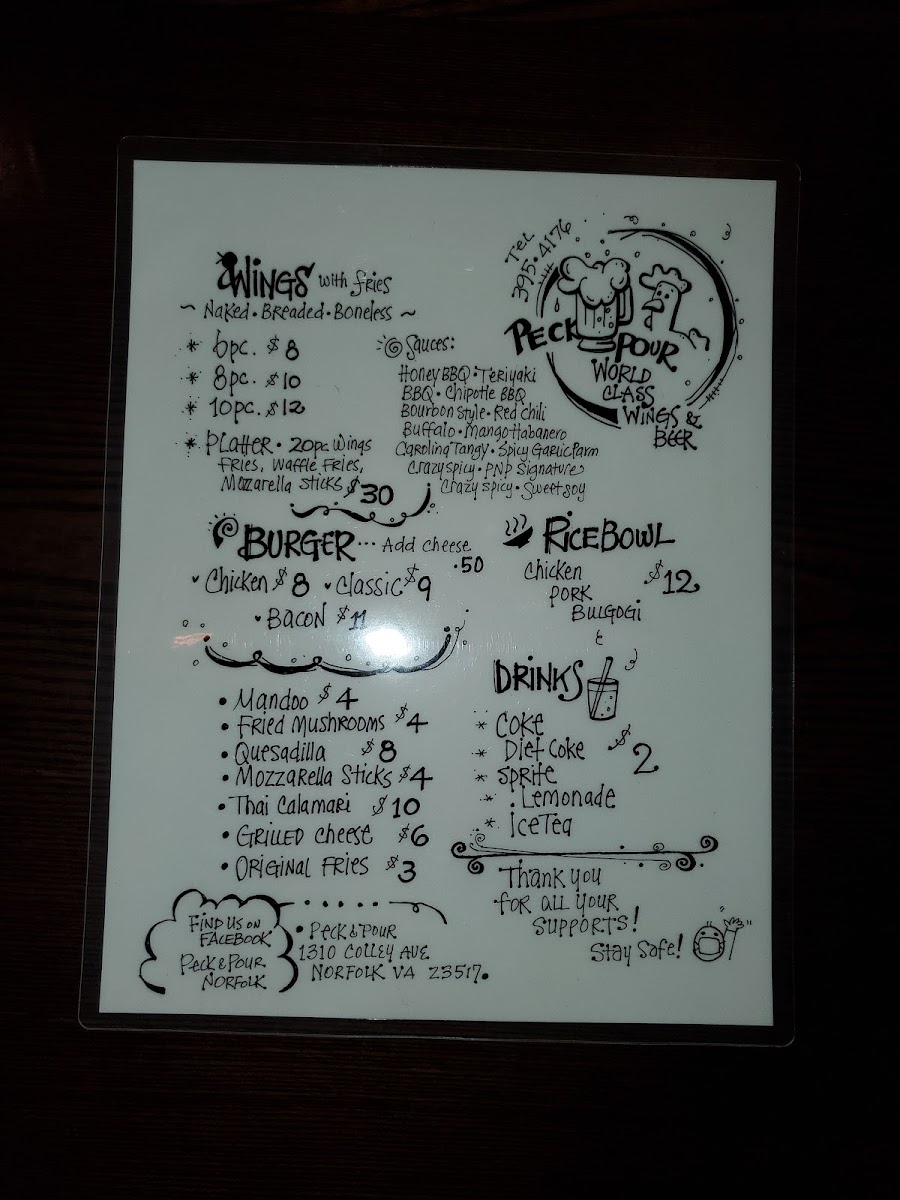 Wings with fries
~ Naked • Breaded • Boneless ~
* 6pc. $8
* 8pc. $10
* 10pc. $12
* Platter • 20pc Wings
Fries, Waffle Fries,
Mozarella Sticks $30
Sauces:
Honey BBQ • Teriyaki
BBQ • Chipotle BBQ
Bourbon Style • Red Chili
Buffalo • Mango Habanero
Carolina Tangy • Spicy Garlic Parm
Crazy Spicy • PNP Signature
Crazy Spicy • Sweet Soy
Tel
395•4176
Peck
Pour
World
Class
Wings &
Beer
Burger... Add cheese
.50
Chicken $8 Classic $9
Bacon $11
Rice Bowl
Chicken
Pork
Bulgogi
$12
• Mandoo $4
• Fried Mushrooms $4
• Quesadilla $8
• Mozzarella Sticks $4
• Thai Calamari $10
• Grilled Cheese $6
• Original Fries $3
Drinks
* Coke
* Diet Coke
* Sprite
* Lemonade
* Ice Tea
$2
Thank you
for all your
supports!
Stay Safe!
Find us on
Facebook
Peck & Pour
Norfolk
• Peck & Pour
1310 Colley Ave.
Norfolk VA 23517.